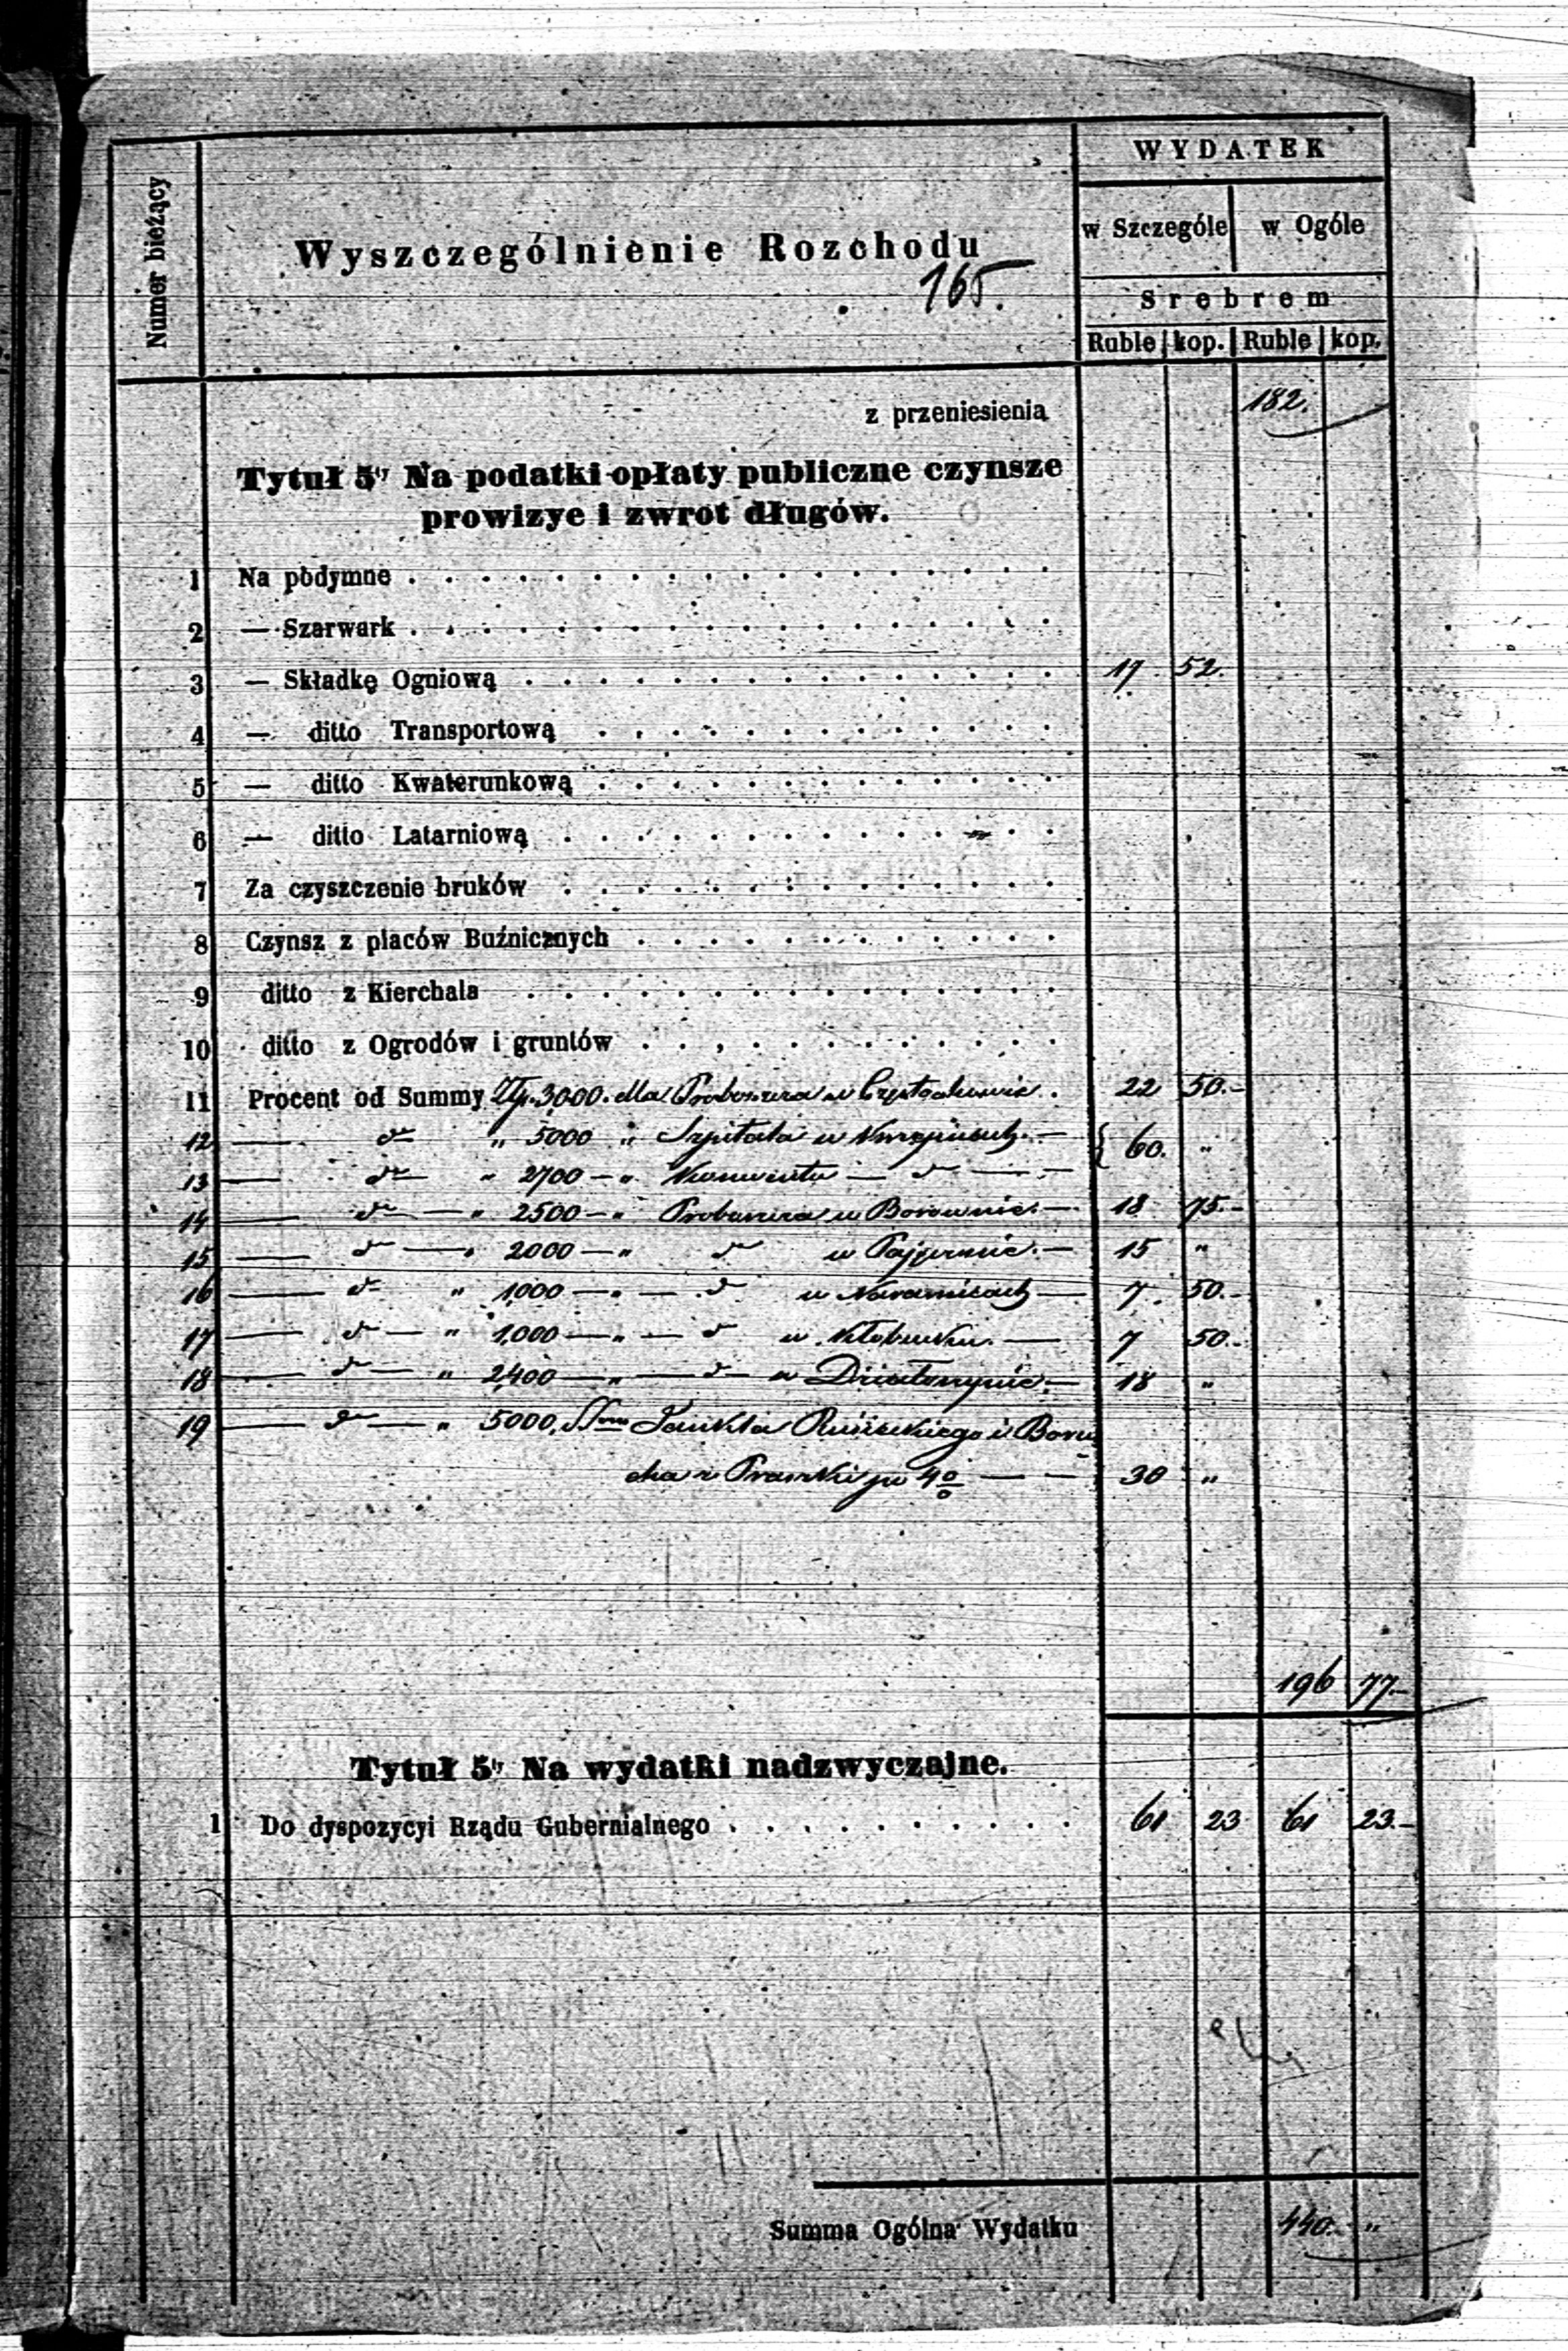 Numer bieżący
Wyszczególnienie Rozchodu
165.
WYDATEK
w Szczególe w Ogóle
Srebrem
Ruble kop. Ruble kop.
z przeniesienia 182.
Tytuł 5ty Na podatki opłaty publiczne czynsze
prowizye i zwrot długów.
1 Na podymne
2 — Szarwark
3 — Składkę Ogniową 17 52.
4 — ditto Transportową
5 — ditto Kwaterunkową
6 — ditto Latarniową
7 Za czyszczenie bruków
8 Czynsz z placów Buźnicznych
9 ditto z Kierchala
10 ditto z Ogrodów i gruntów
11 Procent od Summy Złp. 3000. dla Proboszcza w Częstochowie. 22 50.-
12 — do " 5000 " Szpitala w { 60. "
13 — do " 2700 — " Konwentu — do —
14 — do — " 2500 — " Proboszcza w Borownie. — 18 75.-
15 — do — " 2000 — " do w — 15 "
16 — do " 1000 — " — do w Naramicach — 7. 50.-
17 — do — " 1,000 — " — do w Kłobucku. — 7 50.-
18 — do — " 2400 — " — do — w Działoszynie. — 18 "
19 — do — " 5000. Ssrow Jankla i Boru
cha z Praszki po 4% — — 30 "
196 77.-
Tytuł 5ty Na wydatki nadzwyczajne.
1 Do dyspozycyi Rządu Gubernialnego 61 23 61 23.-
Summa Ogólna Wydatku 440. "